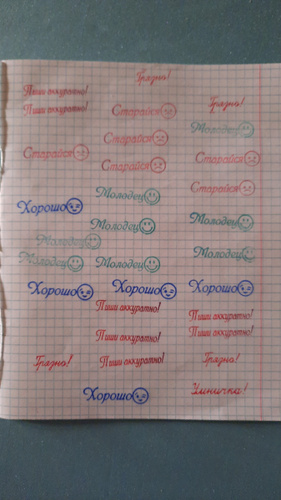 Грязно!
Пиши аккуратно!
Пиши аккуратно! Старайся Грязно!
Молодец
Старайся
Старайся Старайся Старайся
Старайся
Молодец
Хорошо
Молодец Молодец
Молодец
Молодец Молодец Молодец
Хорошо Хорошо Хорошо
Пиши аккуратно!
Пиши аккуратно!
Пиши аккуратно! Пиши аккуратно!
Грязно! Пиши аккуратно! Грязно!
Хорошо Умничка!